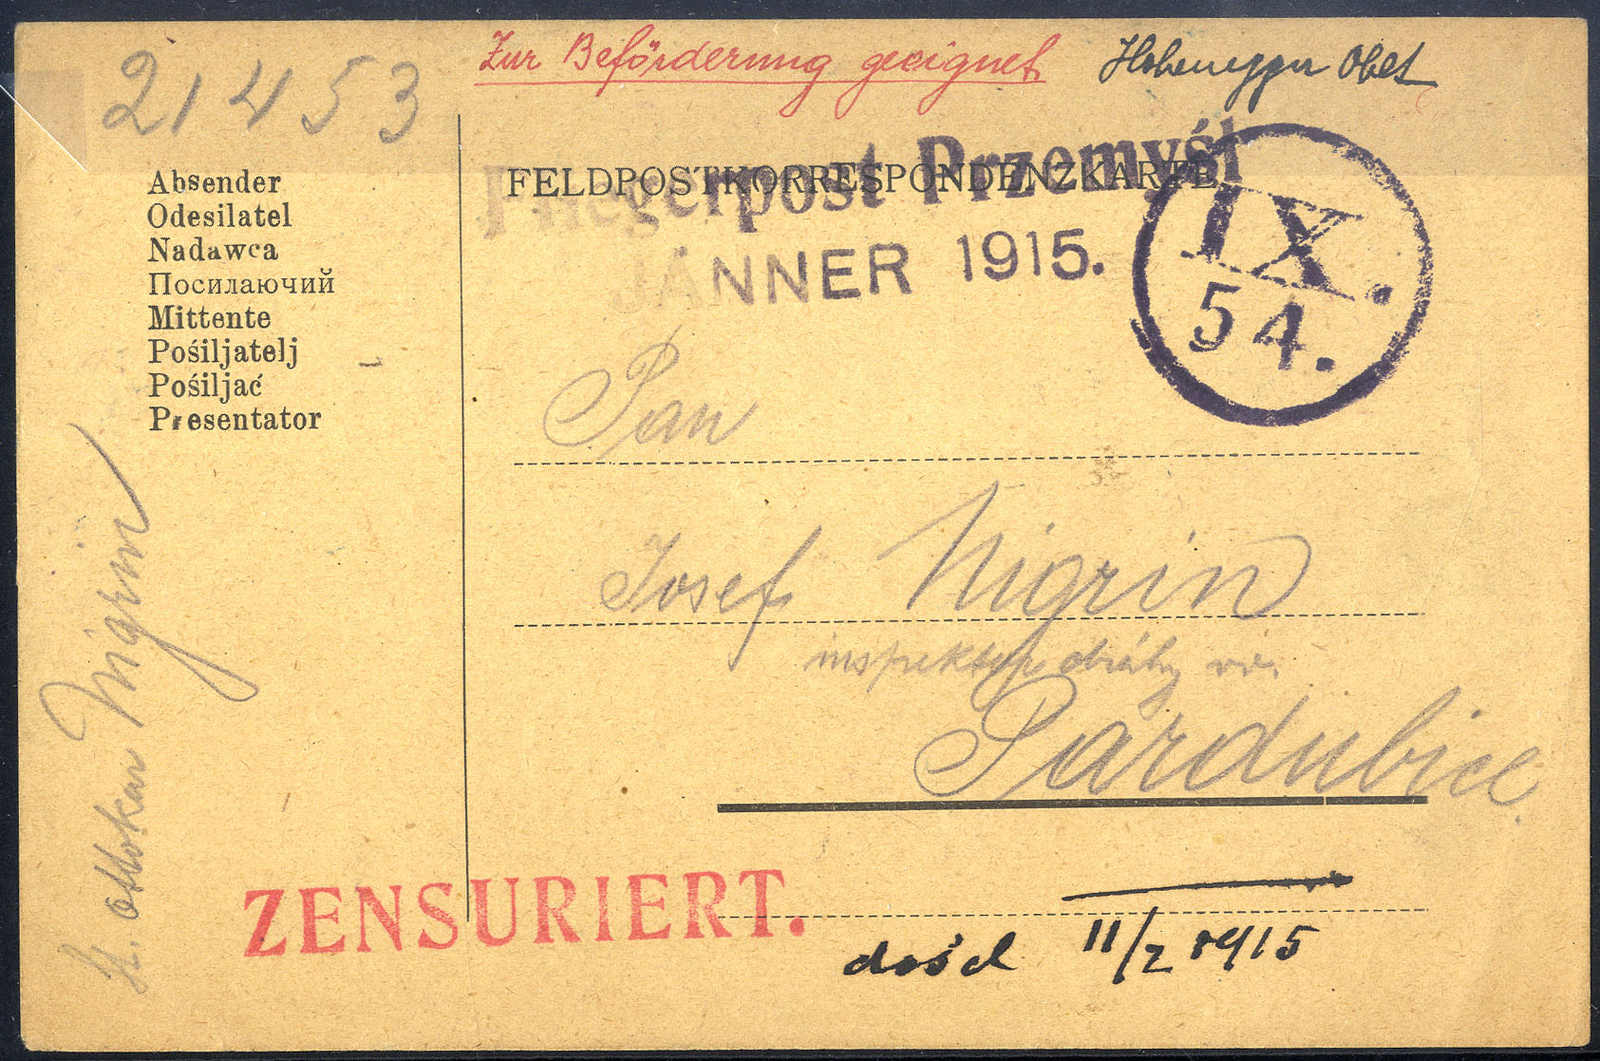 21453
Zur Beförderung geeignet Hohenegger Obst
Fliegerpost Przemyśl
FELDPOSTKORRESPONDENZKARTE
JÄNNER 1915.
IX.
54.
Absender
Odesilatel
Nadawca
Посилаючий
Mittente
Pośiljatelj
Pośiljać
Presentator
Pan
Josef Nigrin
inspektor dráhy
Pardubice
Ottokar Nigrin
ZENSURIERT.
došel 11/2 1915